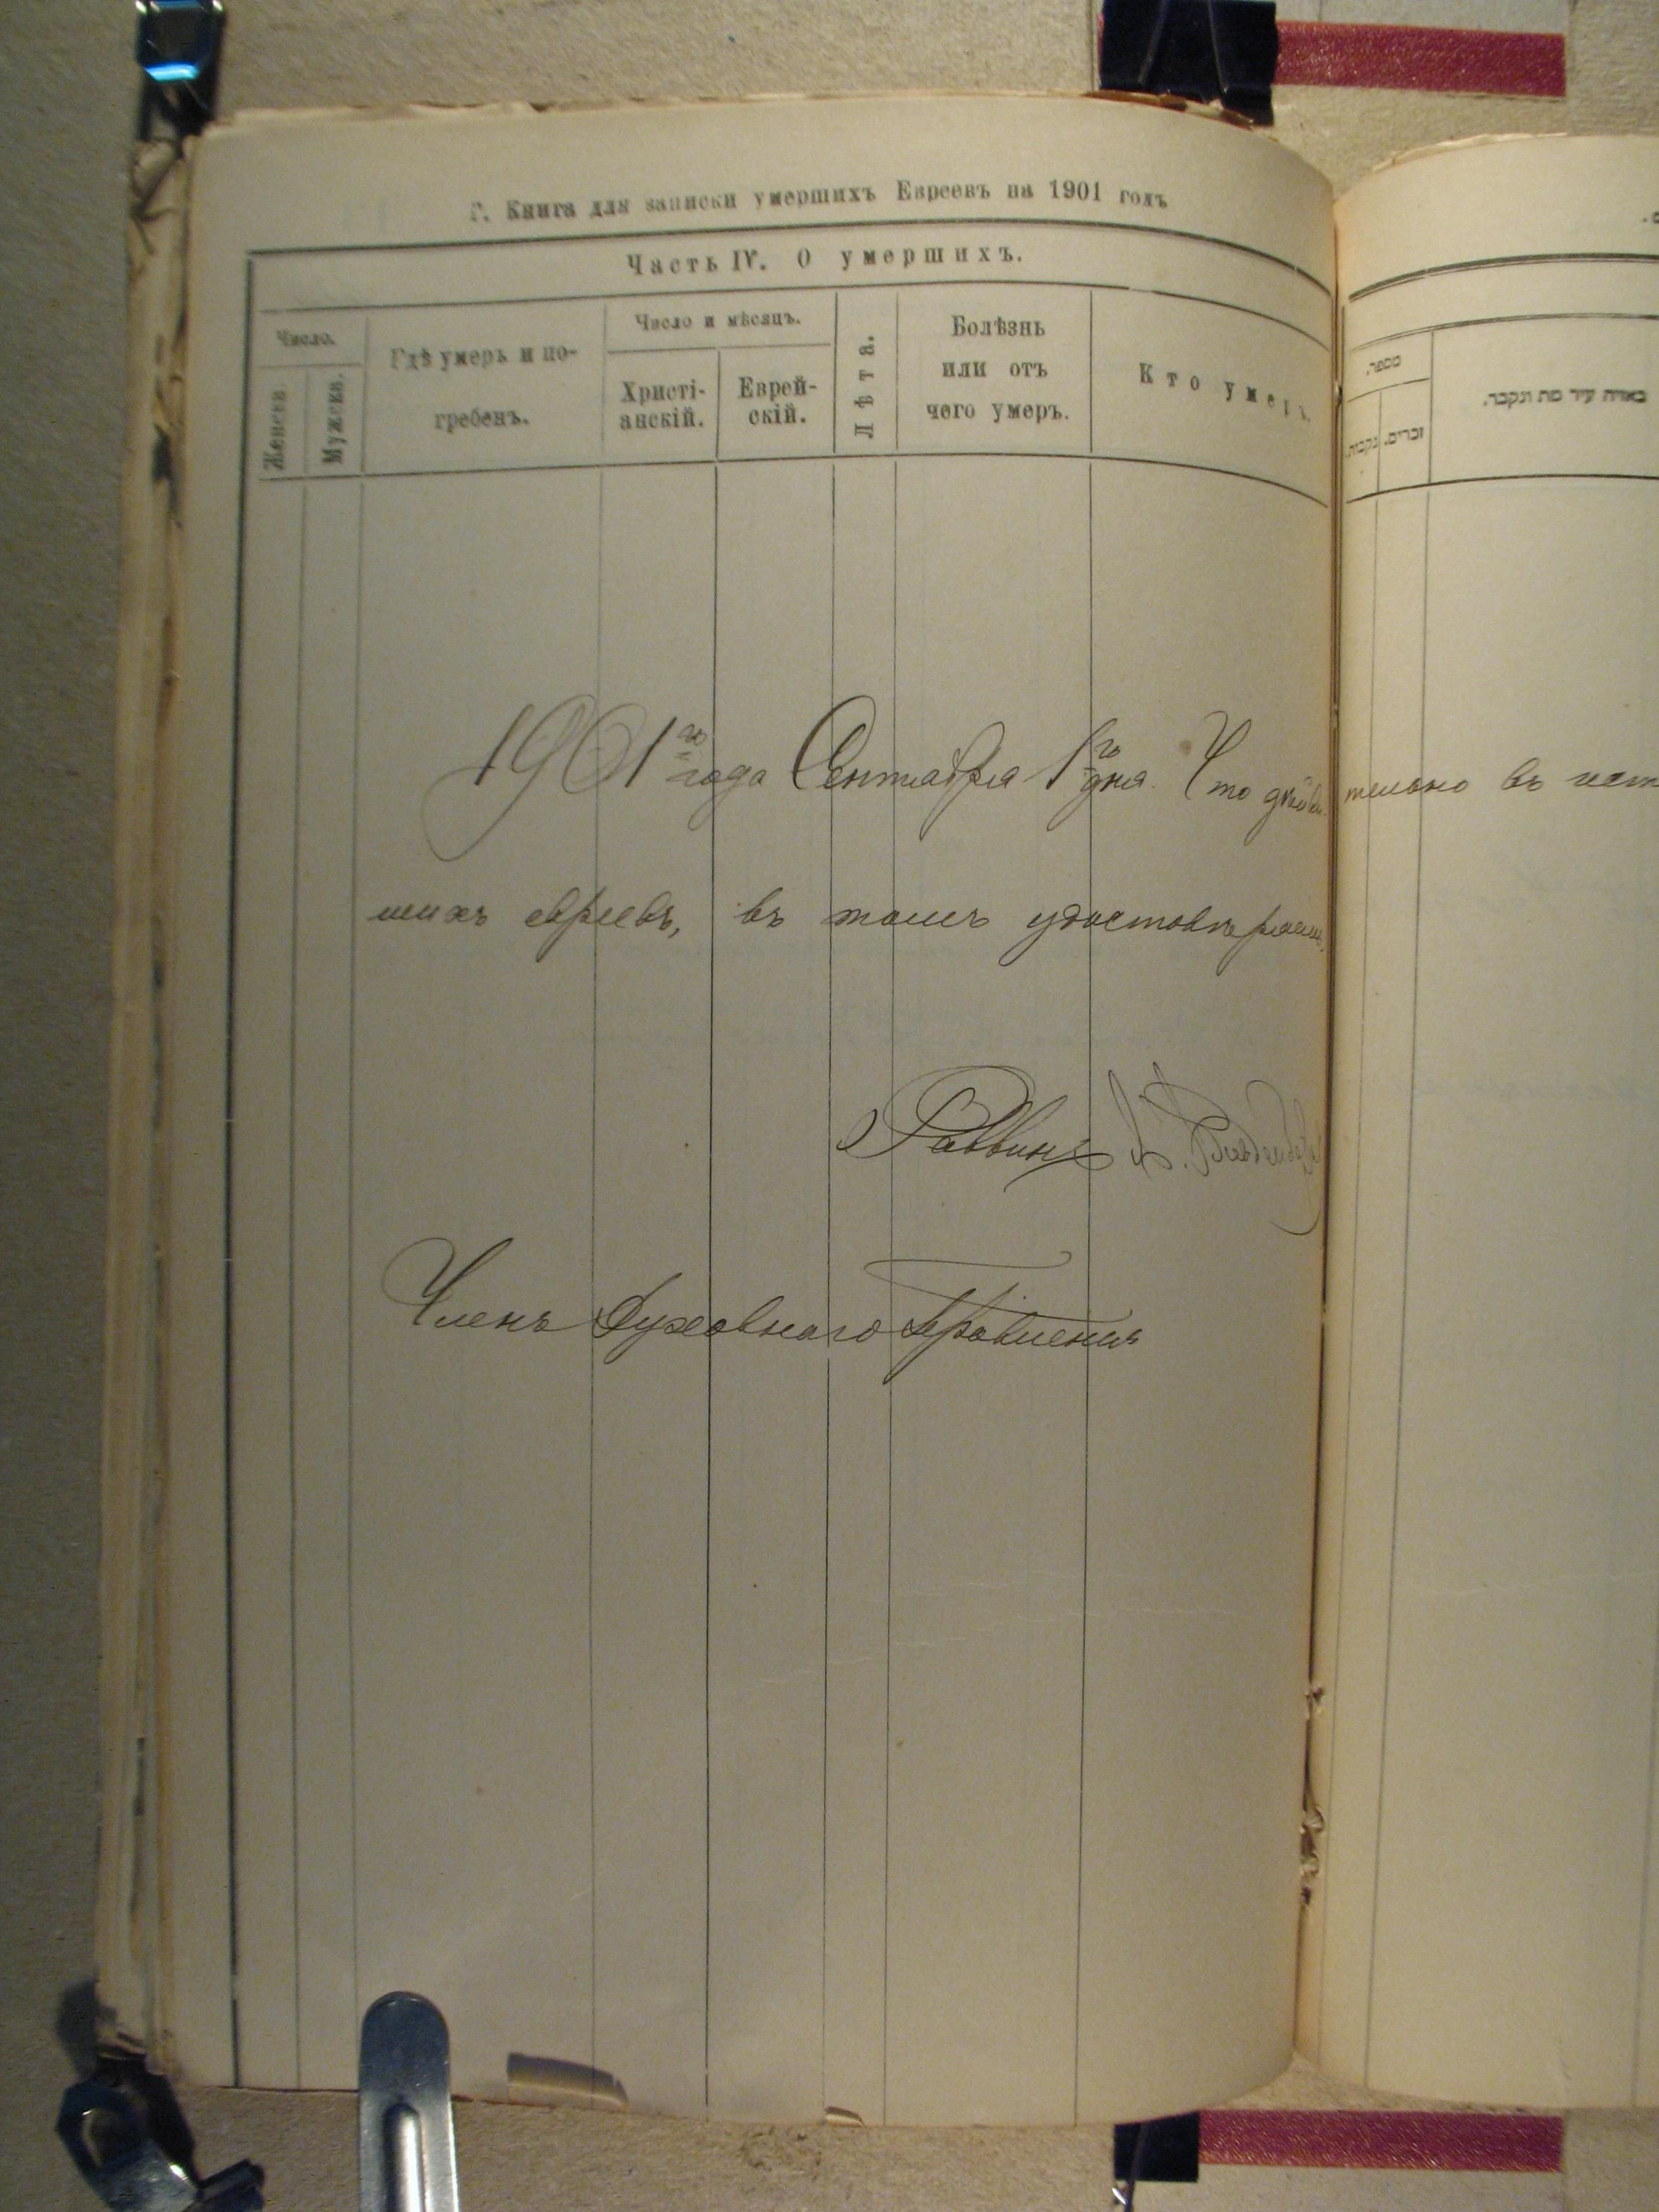 Г. Книга для записки умершихъ Евреевъ на 1901 годъ
Часть IV. О умершихъ.
Число.
Женска.
Мужска.
Гдѣ умеръ и по-
гребенъ.
Число и мѣсяцъ.
Христі-
анскій.
Еврей-
скій.
Лѣта.
Болѣзнь
или отъ
чего умеръ.
Кто умеръ.
1901го года Сентября 1го дня. Что дѣйстви
шихъ евреевъ, въ томъ удостовѣряемъ.
Раввинъ
Членъ Духовнаго Правленія
מספר.
נקבות.
זכרים.
באיזה עיר מת ונקבר.
тельно въ